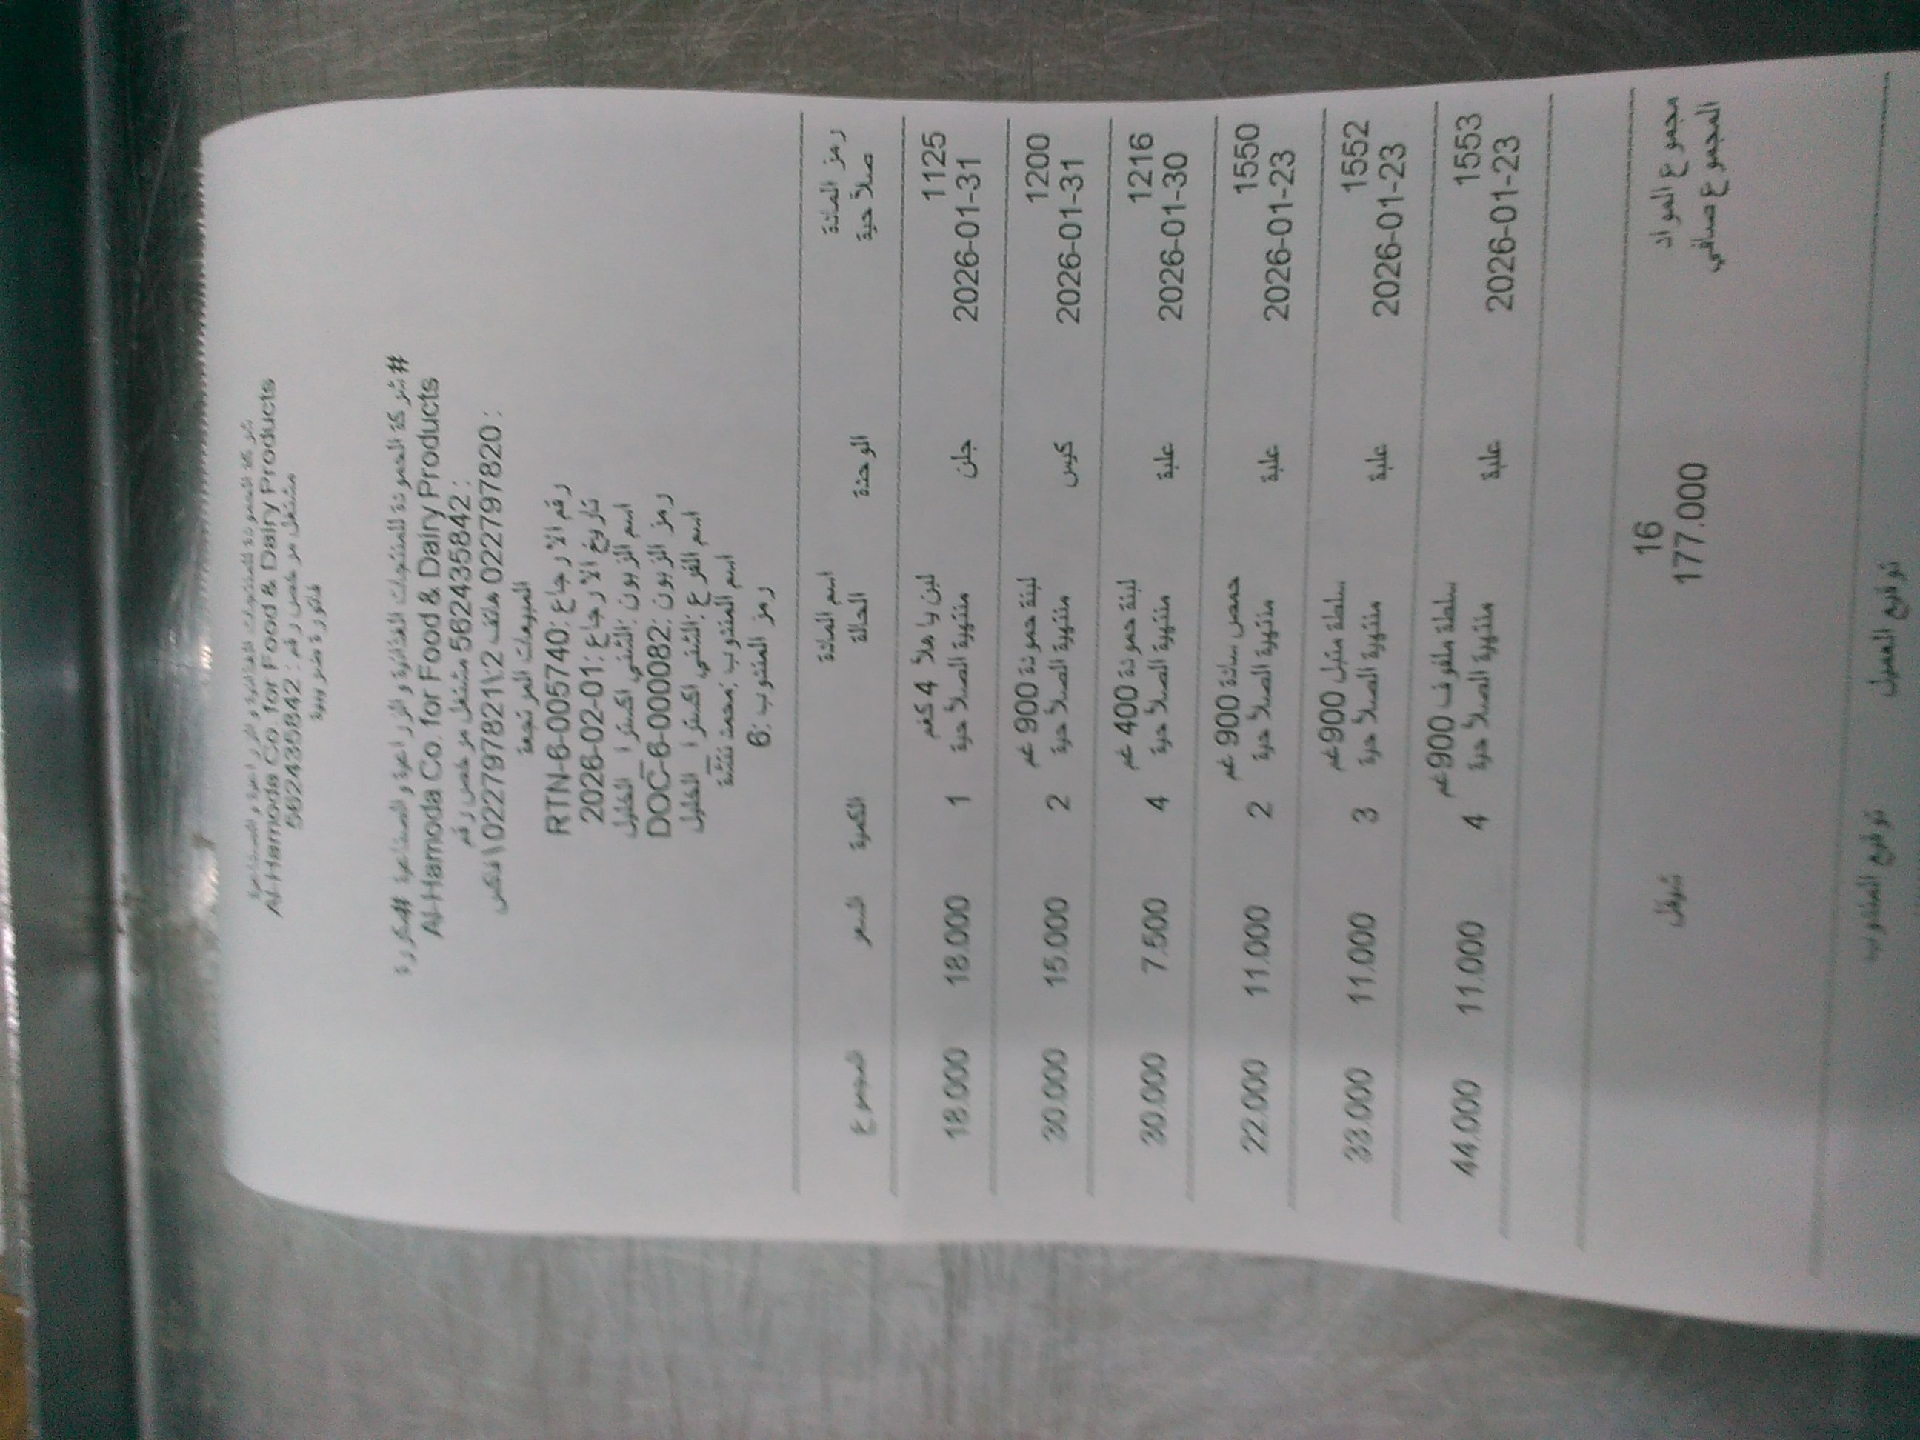 شركة الحمودة للمنتجات الغذائية و الزراعية و الصناعية
Al-Hamoda Co. for Food & Dairy Products
مشتغل مرخص رقم : 562435842
فاتورة ضريبية
#شركة الحمودة للمنتجات الغذائية و الزراعية و الصناعية #مكررة
Al-Hamoda Co. for Food & Dairy Products
562435842 مشتغل مرخص رقم :
022797820 هاتف 2\022797821\ فاكس :
المبيعات المرتجعة
رقم الارجاع :RTN-6-005740
تاريخ الارجاع :2026-02-01
اسم الزبون :الشني اكسترا _الخليل
رمز الزبون :DOC-6-000082
اسم الفرع :الشني اكسترا _الخليل
اسم المندوب :محمد نتشة
رمز المندوب :6
رمز المادة اسم المادة
صلاحية الوحدة الحالة الكمية السعر المجموع
1125 لبن يا هلا 4 كغم
2026-01-31 جلن منتهية الصلاحية 1 18.000 18.000
1200 لبنة حمودة 900 غم
2026-01-31 كيس منتهية الصلاحية 2 15.000 30.000
1216 لبنة حمودة 400 غم
2026-01-30 علبة منتهية الصلاحية 4 7.500 30.000
1550 حمص سادة 900 غم
2026-01-23 علبة منتهية الصلاحية 2 11.000 22.000
1552 سلطة متبل 900غم
2026-01-23 علبة منتهية الصلاحية 3 11.000 33.000
1553 سلطة ملفوف 900غم
2026-01-23 علبة منتهية الصلاحية 4 11.000 44.000
مجموع المواد 16
المجموع صافي 177.000 شيقل
توقيع العميل توقيع المندوب